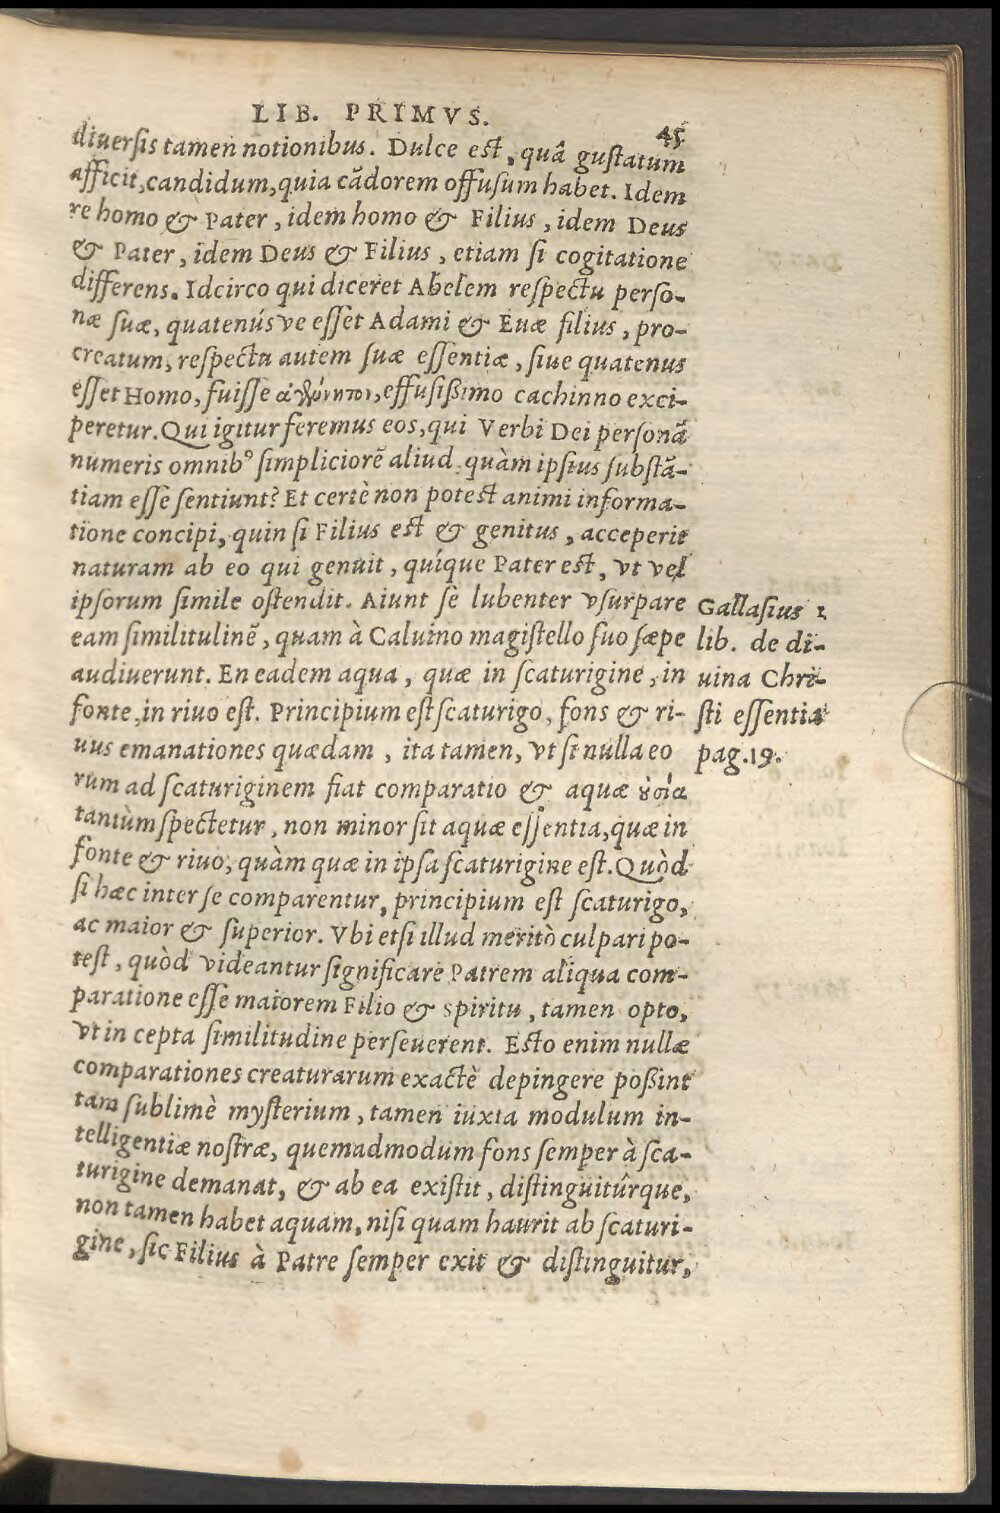 LIB. PRIMVS.
45
diuerſis tamen notionibus. Dulce eſt, quâ guſtatum
afficit, candidum, quia cādorem offuſum habet. Idem
re homo & Pater, idem homo & Filius, idem Deus
& Pater, idem Deus & Filius, etiam ſi cogitatione
differens. Idcirco qui diceret Abelem reſpectu perſo-
næ ſuæ, quatenúsve eſſet Adami & Euæ filius, pro-
creatum, reſpectu autem ſuæ eſſentiæ, ſiue quatenus
eſſet Homo, fuiſſe effuſißimo cachinno exci-
peretur. Qui igitur feremus eos, qui Verbi Dei perſonā
numeris omnib⁹ ſimpliciorē aliud quàm ipſius ſubſtā-
tiam eſſe ſentiunt? Et certè non poteſt animi informa-
tione concipi, quin ſi Filius eſt & genitus, acceperit
naturam ab eo qui genuit, quíque Pater eſt, vt vel
ipſorum ſimile oſtendit. Aiunt ſe lubenter vſurpare
eam ſimilitulinē, quam à Caluino magiſtello ſuo ſæpe
audiuerunt. En eadem aqua, quæ in ſcaturigine, in
fonte, in riuo eſt. Principium eſt ſcaturigo, fons & ri-
uus emanationes quædam, ita tamen, vt ſi nulla eo
rum ad ſcaturiginem fiat comparatio & aquæ ȣ̓σία
tantùm ſpectetur, non minor ſit aquæ eſſentia, quæ in
fonte & riuo, quàm quæ in ipſa ſcaturigine eſt. Quòd
ſi hæc inter ſe comparentur, principium eſt ſcaturigo,
ac maior & ſuperior. Vbi etſi illud meritò culpari po-
teſt, quòd videantur ſignificare Patrem aliqua com-
paratione eſſe maiorem Filio & Spiritu, tamen opto,
vt in cepta ſimilitudine perſeuerent. Eſto enim nullæ
comparationes creaturarum exactè depingere poßint
tam ſublimè myſterium, tamen iuxta modulum in-
telligentiæ noſtræ, quemadmodum fons ſemper à ſca-
turigine demanat, & ab ea exiſtit, diſtinguitûrque,
non tamen habet aquam, niſi quam haurit ab ſcaturi-
gine, ſic Filius à Patre ſemper exit & diſtinguitur,
Gallaſius 1
lib. de di-
uina Chri-
ſti eſſentia
pag.19.